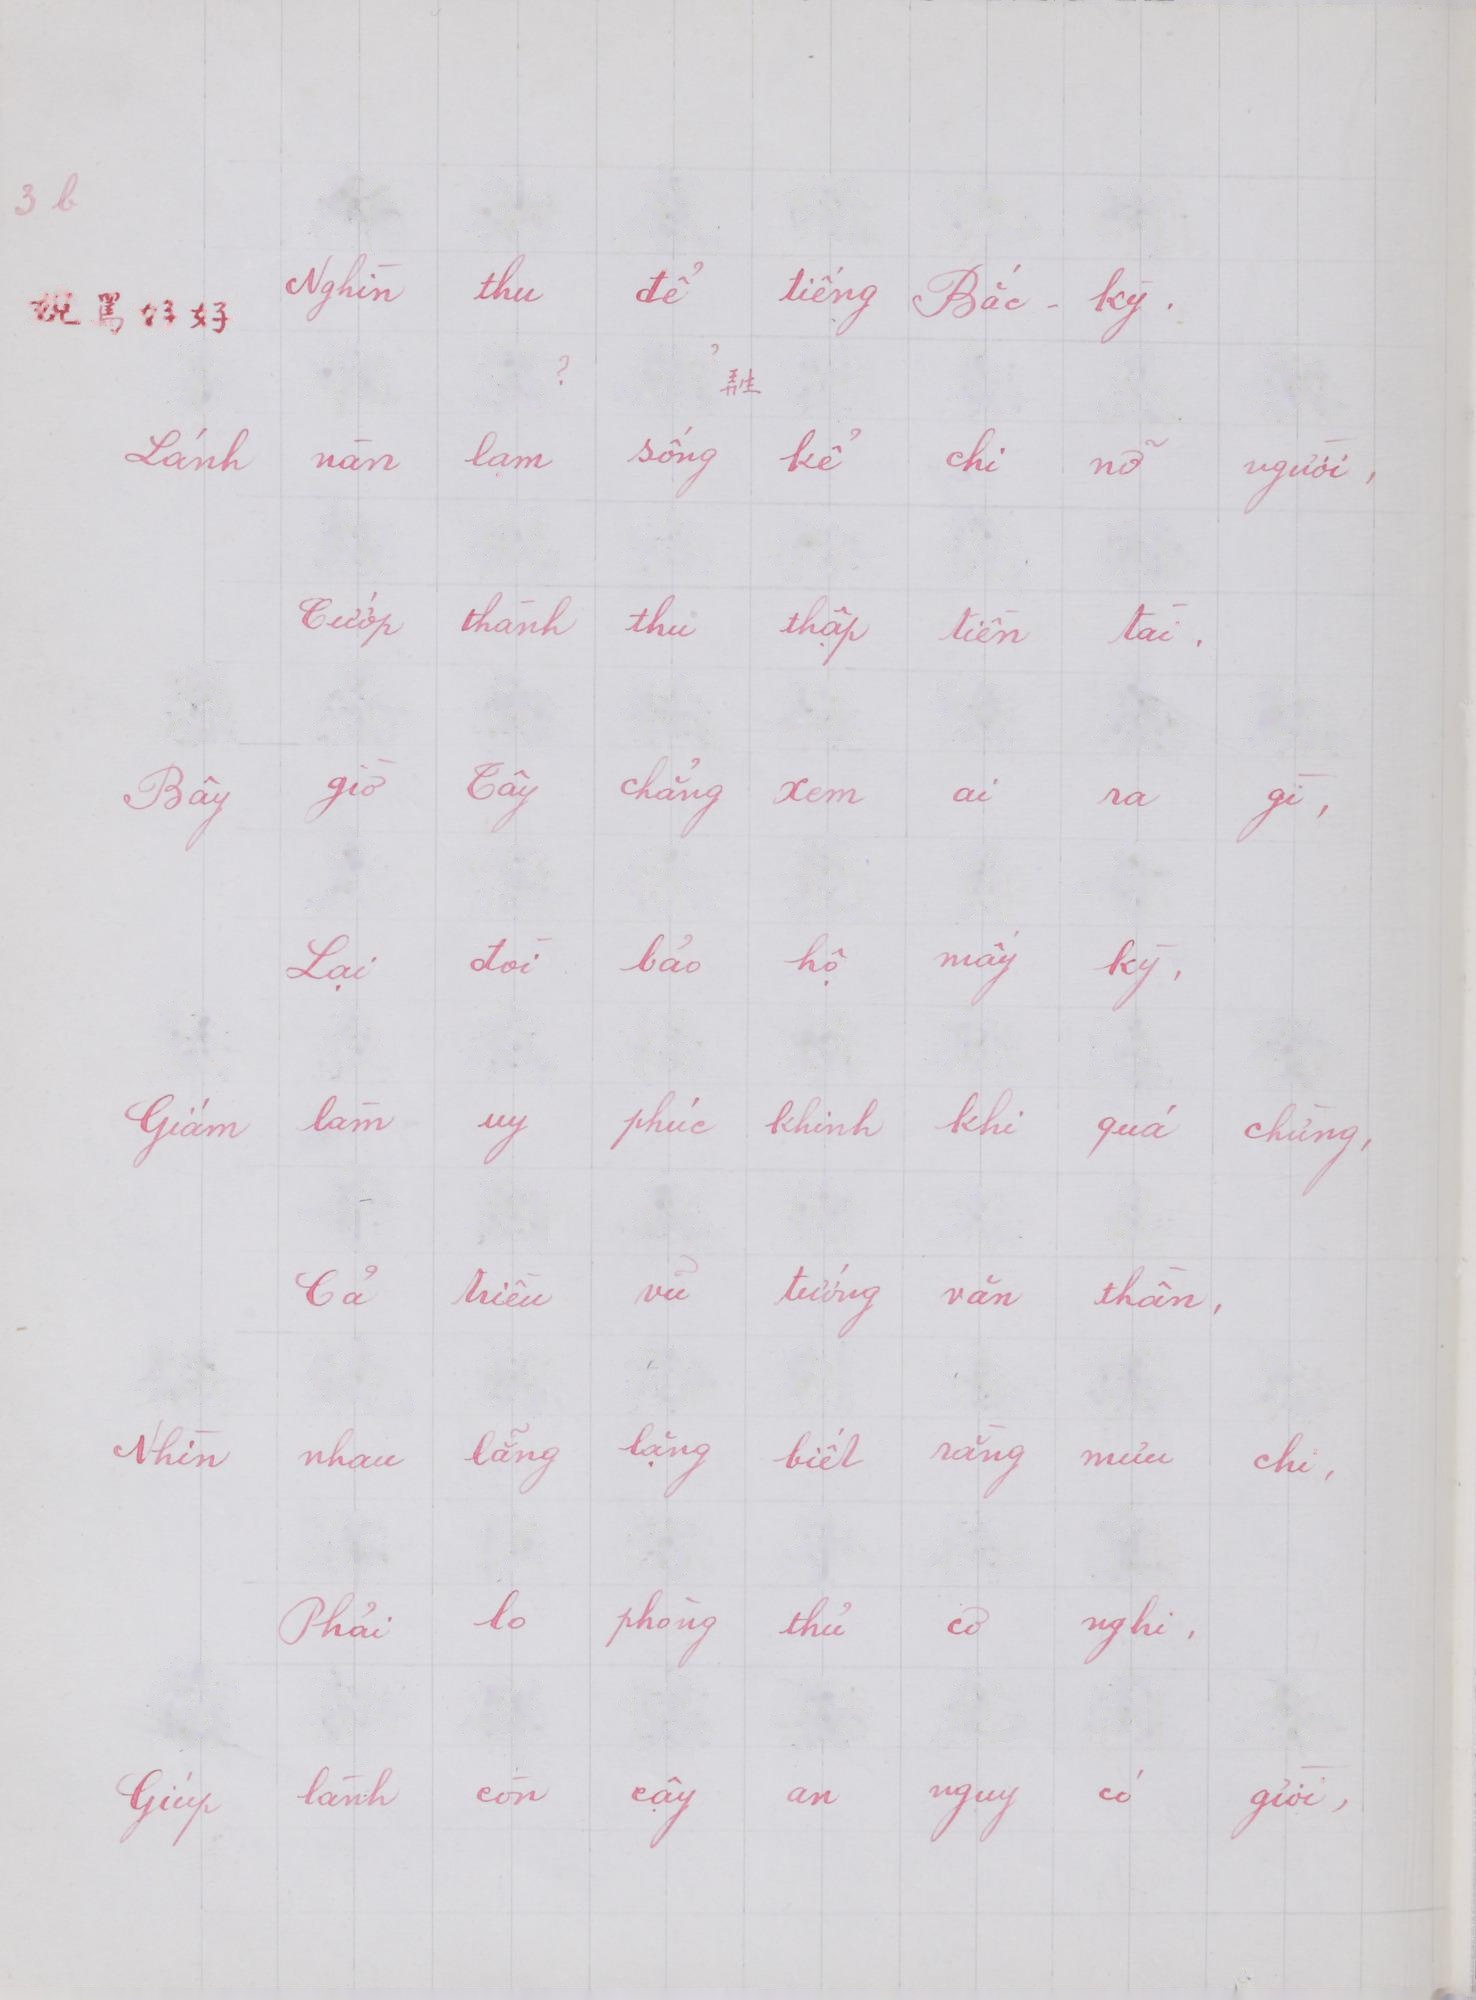 3 b
Nghìn thu để tiếng Bắc-kỳ.
罵 好 好
? ?
Lánh nàn lạm sống kể chi nỡ người,
Cướp thành thu thập tiền tài.
Bây giờ Tây chẳng xem ai ra gì,
Lại đòi bảo hộ mấy kỳ,
Giám làm uy phúc khinh khi quá chừng,
Cả triều vũ tướng văn thần,
Nhìn nhau lẵng lặng biết rằng mưu chi,
Phải lo phòng thủ cơ nghi,
Giúp lành còn cậy an nguy có giời,